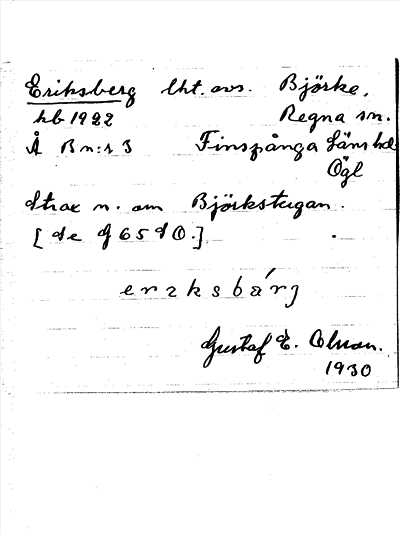 Eriksberg lht. avs. Björke,
hb 1922 Regna sn.
Å B n:r 3 Finspånga läns hd
Ögl
strax n. om Björkstugan.
[de g 65 d 0.]
erzksbárg
Gustaf E. Olsson.
1930